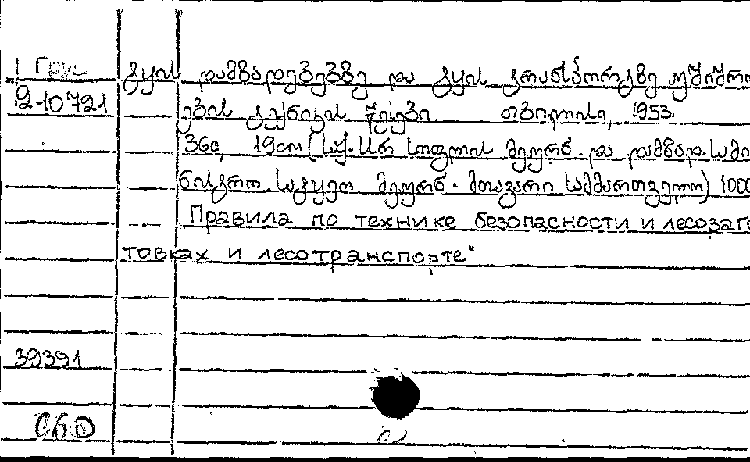 ტყის დამზადებებზე და ტყის ტრანსპორტზე უშიშრო
2-10721
ების ტექნიკის წესები თბილისი, 1953
36გ, 19cm (საქ. სსრ სოფლის მეურნ. და დამზად. სამი
ნისტრო. სატყეო მეურნ. მთავარი სამმართველო) 1000
Правила по технике безопасности и лесозаго
товках и лесотранспорте"
39391